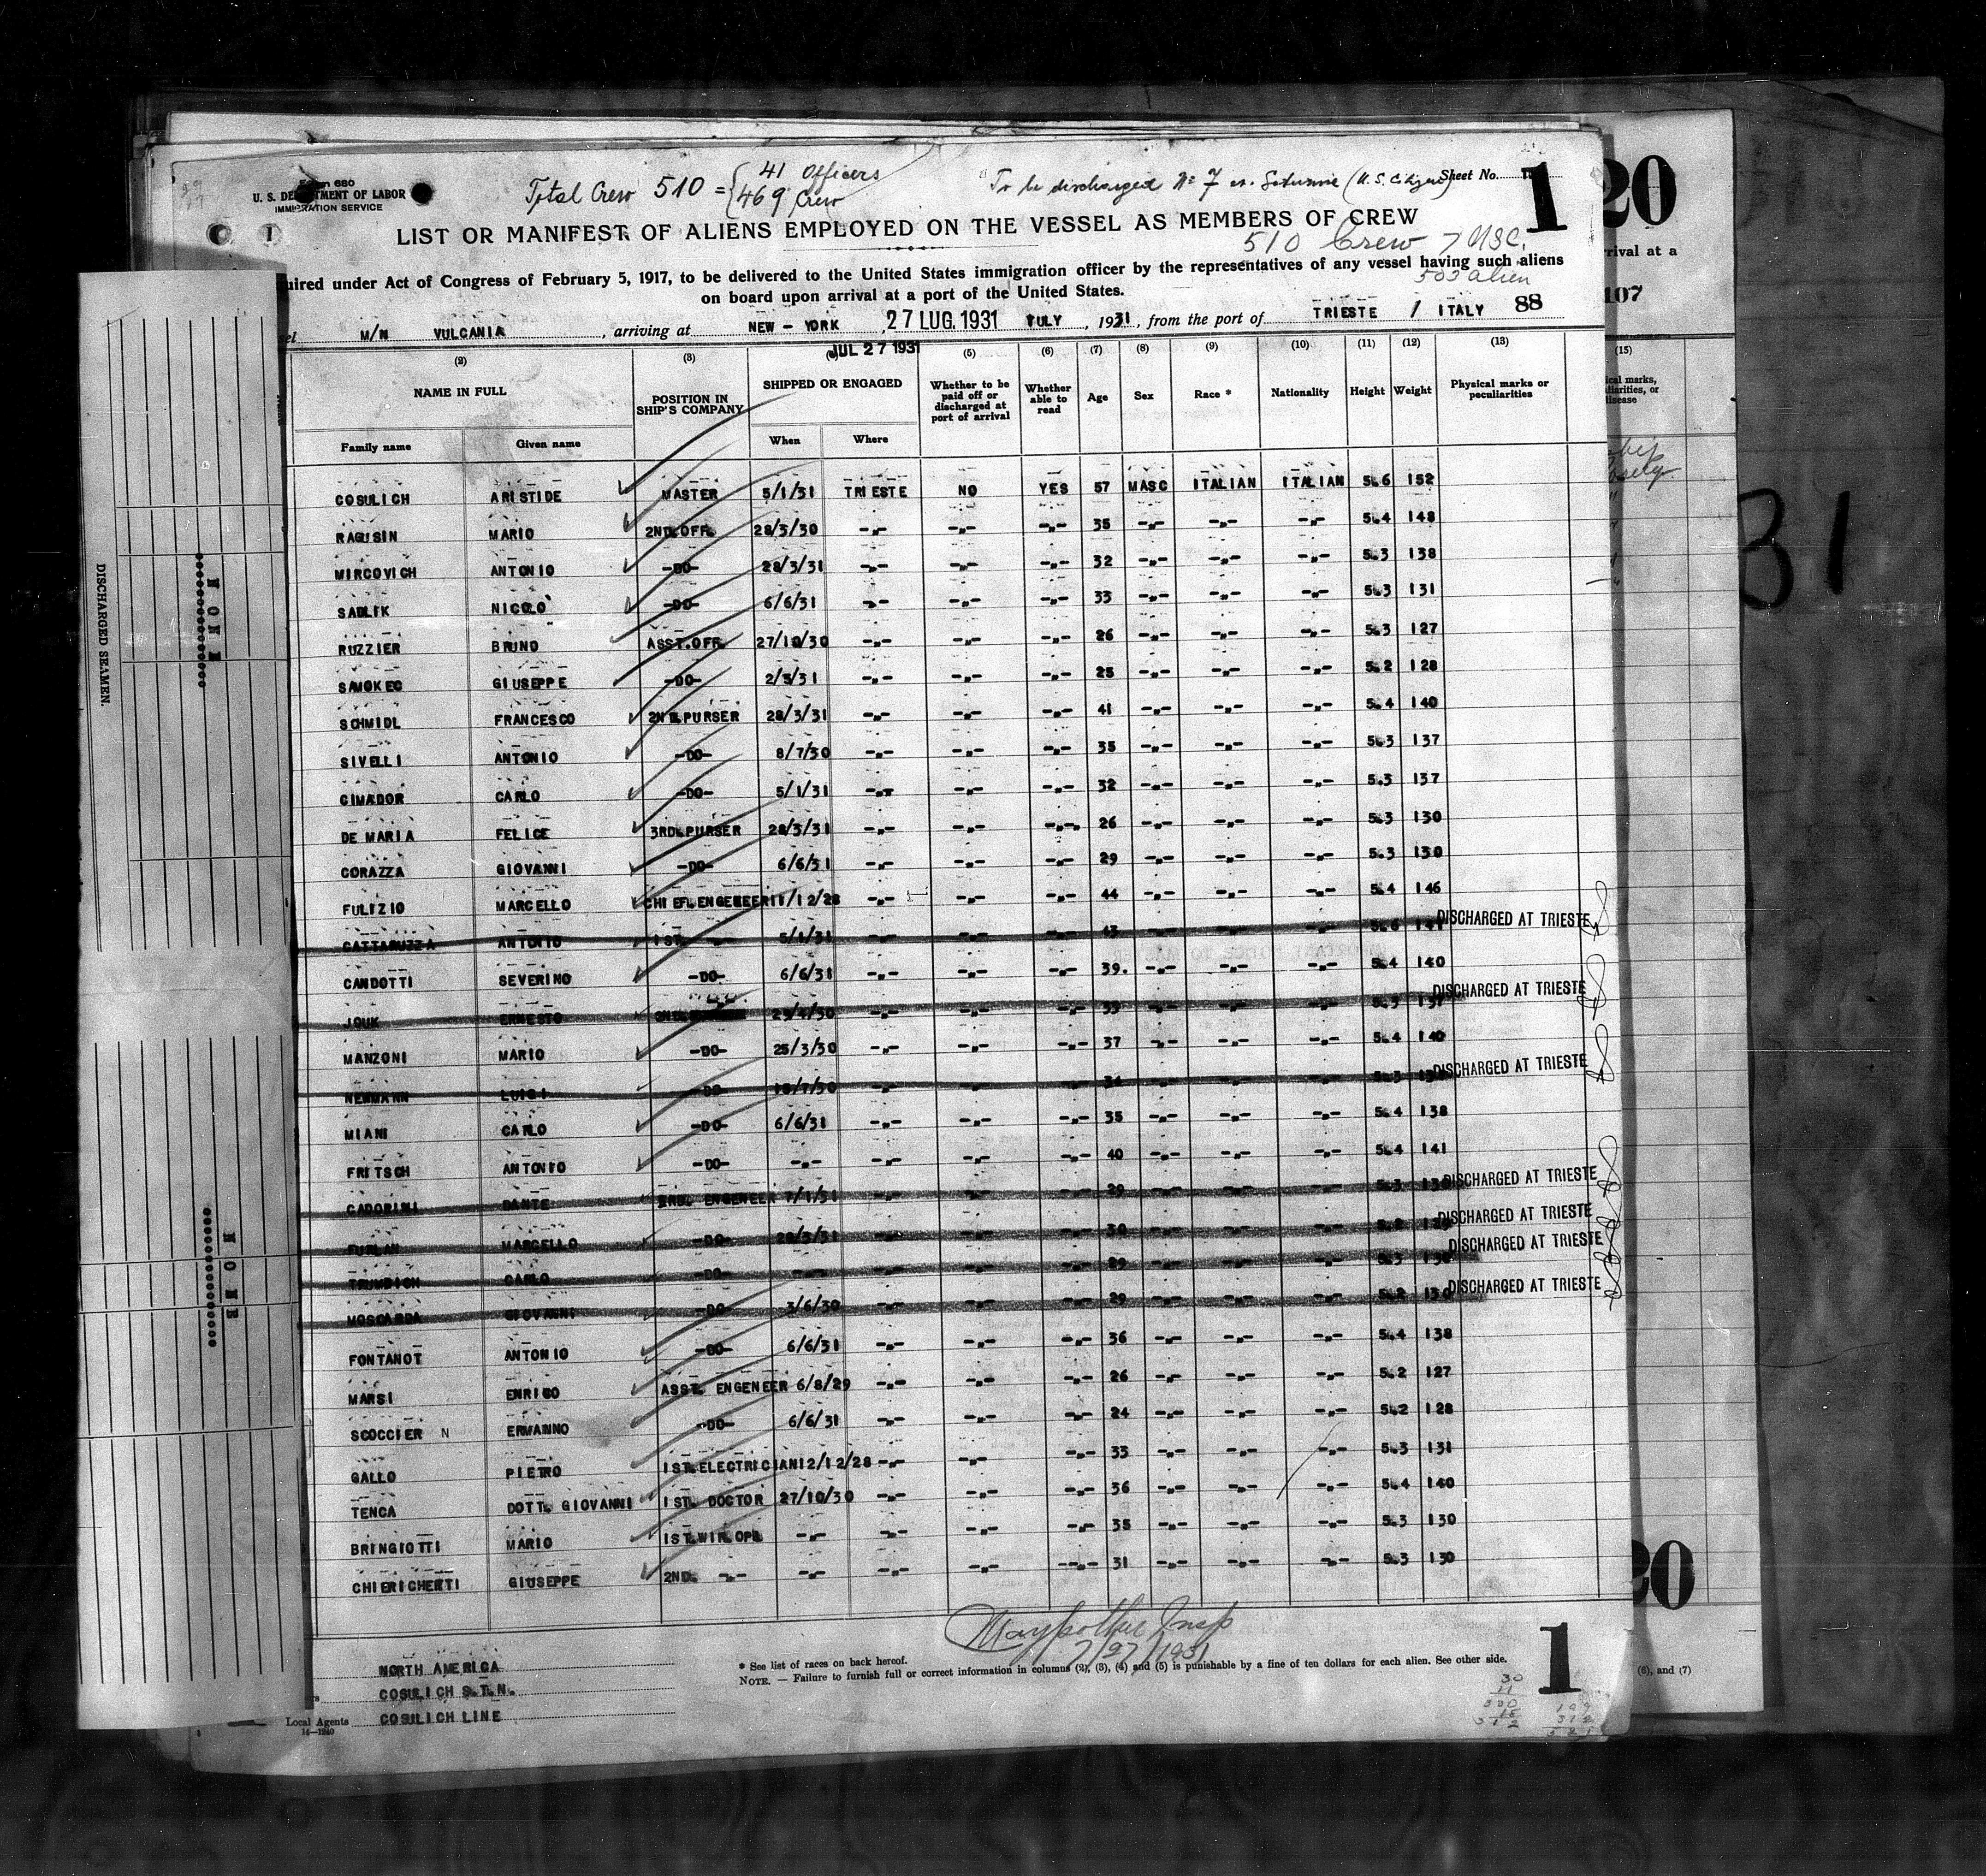 Total Crew 510 = { 41 Officers
469 Crew
To be discharged No 7 (U.S. Citizens)
Form 680
U. S. DEPARTMENT OF LABOR
IMMIGRATION SERVICE
Sheet No. 1
1
20
LIST OR MANIFEST OF ALIENS EMPLOYED ON THE VESSEL AS MEMBERS OF CREW
510 Crew 7 USC.
503 alien
uired under Act of Congress of February 5, 1917, to be delivered to the United States immigration officer by the representatives of any vessel having such aliens
on board upon arrival at a port of the United States.
sel M/N VULCANIA, arriving at NEW-YORK 27 LUG. 1931 JULY, 1931, from the port of TRIESTE / ITALY 88
JUL 27 1931
(2) (3) (5) (6) (7) (8) (9) (10) (11) (12) (13)
NAME IN FULL POSITION IN SHIP'S COMPANY SHIPPED OR ENGAGED Whether to be paid off or discharged at port of arrival Whether able to read Age Sex Race * Nationality Height Weight Physical marks or peculiarities
Family name Given name When Where
COSULICH ARISTIDE MASTER 5/1/31 TRIESTE NO YES 57 MASC ITALIAN ITALIAN 5.6 152
RAGUSIN MARIO 2ND.OFF. 28/3/30 -"- -"- -"- 35 -"- -"- -"- 5.4 148
MIRCOVICH ANTONIO -DO- 28/3/31 -"- -"- -"- 32 -"- -"- -"- 5.3 138
SADLIK NICOLO' -DO- 6/6/31 -"- -"- -"- 33 -"- -"- -"- 5.3 131
RUZZIER BRUNO ASST.OFF. 27/10/30 -"- -"- -"- 26 -"- -"- -"- 5.3 127
SAMOKEC GIUSEPPE -DO- 2/3/31 -"- -"- -"- 25 -"- -"- -"- 5.2 128
SCHMIDL FRANCESCO 2ND.PURSER 28/3/31 -"- -"- -"- 41 -"- -"- -"- 5.4 140
SIVELLI ANTONIO -DO- 8/7/30 -"- -"- -"- 35 -"- -"- -"- 5.3 137
CIMADOR CARLO -DO- 5/1/31 -"- -"- -"- 32 -"- -"- -"- 5.3 137
DE MARIA FELICE 3RD.PURSER 28/3/31 -"- -"- -"- 26 -"- -"- -"- 5.3 130
CORAZZA GIOVANNI -DO- 6/6/31 -"- -"- -"- 29 -"- -"- -"- 5.3 130
FULIZIO MARCELLO CHIEF.ENGENEER 11/12/28 -"- -"- -"- 44 -"- -"- -"- 5.4 146
CATTARUZZA ANTONIO 1ST. -"- 5/1/31 -"- -"- -"- 43 -"- -"- -"- 5.6 141 DISCHARGED AT TRIESTE
CANDOTTI SEVERINO -DO- 6/6/31 -"- -"- -"- 39. -"- -"- -"- 5.4 140
JOUK ERNESTO 25/4/30 -"- -"- -"- 39 -"- -"- -"- 5.3 DISCHARGED AT TRIESTE
MANZONI MARIO -DO- 25/3/30 -"- -"- -"- 37 -"- -"- -"- 5.4 140
NEWMANN LUIGI -DO- 18/7/30 -"- -"- -"- 34 -"- -"- -"- 5.3 DISCHARGED AT TRIESTE
MIANI CARLO -DO- 6/6/31 -"- -"- -"- 35 -"- -"- -"- 5.4 138
FRITSCH ANTONIO -DO- -"- -"- -"- -"- 40 -"- -"- -"- 5.4 141
CADORINI DANTE 3RD. ENGENEER 7/1/31 -"- -"- -"- 29 -"- -"- -"- 5.3 DISCHARGED AT TRIESTE
FURLAN MARCELLO -DO- 28/3/31 -"- -"- -"- 30 -"- -"- -"- 5.2 DISCHARGED AT TRIESTE
CARLO -DO- -"- -"- -"- -"- 29 -"- -"- -"- 5.3 130 DISCHARGED AT TRIESTE
MOSCARDA GIOVANNI -DO- 3/6/30 -"- -"- -"- 29 -"- -"- -"- 5.2 130 DISCHARGED AT TRIESTE
FONTANOT ANTONIO -DO- 6/6/31 -"- -"- -"- 36 -"- -"- -"- 5.4 138
MARSI ENRICO ASST. ENGENEER 6/8/29 -"- -"- -"- 26 -"- -"- -"- 5.2 127
SCOCCIER N ERMANNO -DO- 6/6/31 -"- -"- -"- 24 -"- -"- -"- 5.2 128
GALLO PIETRO 1ST.ELECTRICIAN 12/12/28 -"- -"- -"- 33 -"- -"- -"- 5.3 131
TENCA DOTT. GIOVANNI 1ST. DOCTOR 27/10/30 -"- -"- -"- 36 -"- -"- -"- 5.4 140
BRINGIOTTI MARIO 1ST.WIR.OPR. -"- -"- -"- -"- 35 -"- -"- -"- 5.3 130
CHIERICHETTI GIUSEPPE 2ND. -"- -"- -"- -"- -"- 31 -"- -"- -"- 5.3 130
Insp
7/27/1931
* See list of races on back hereof.
NOTE. — Failure to furnish full or correct information in columns (2), (3), (4) and (5) is punishable by a fine of ten dollars for each alien. See other side.
NORTH AMERICA
COSULICH S.T.N.
Local Agents COSULICH LINE
14—1240
1
DISCHARGED SEAMEN.
NONE
NONE
rival at a
107
(15)
ical marks,
liarities, or
isease
31
20
(6), and (7)